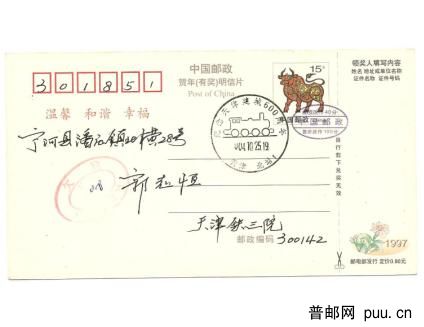 中国邮政
贺年(有奖)明信片
Post of China
15分
领奖人填写内容
姓名 地址或单位名称
证件名称 证件号码
301851
温馨 和谐 幸福
纪念天津建城600周年
2004.10.25.19
中国邮政
宁河县潘庄镇
28号
郭志恒
天津铁三院
邮政编码 300142
自行剪下兑奖无效
1997
邮电部发行 定价0.80元
普邮网 puu.cn